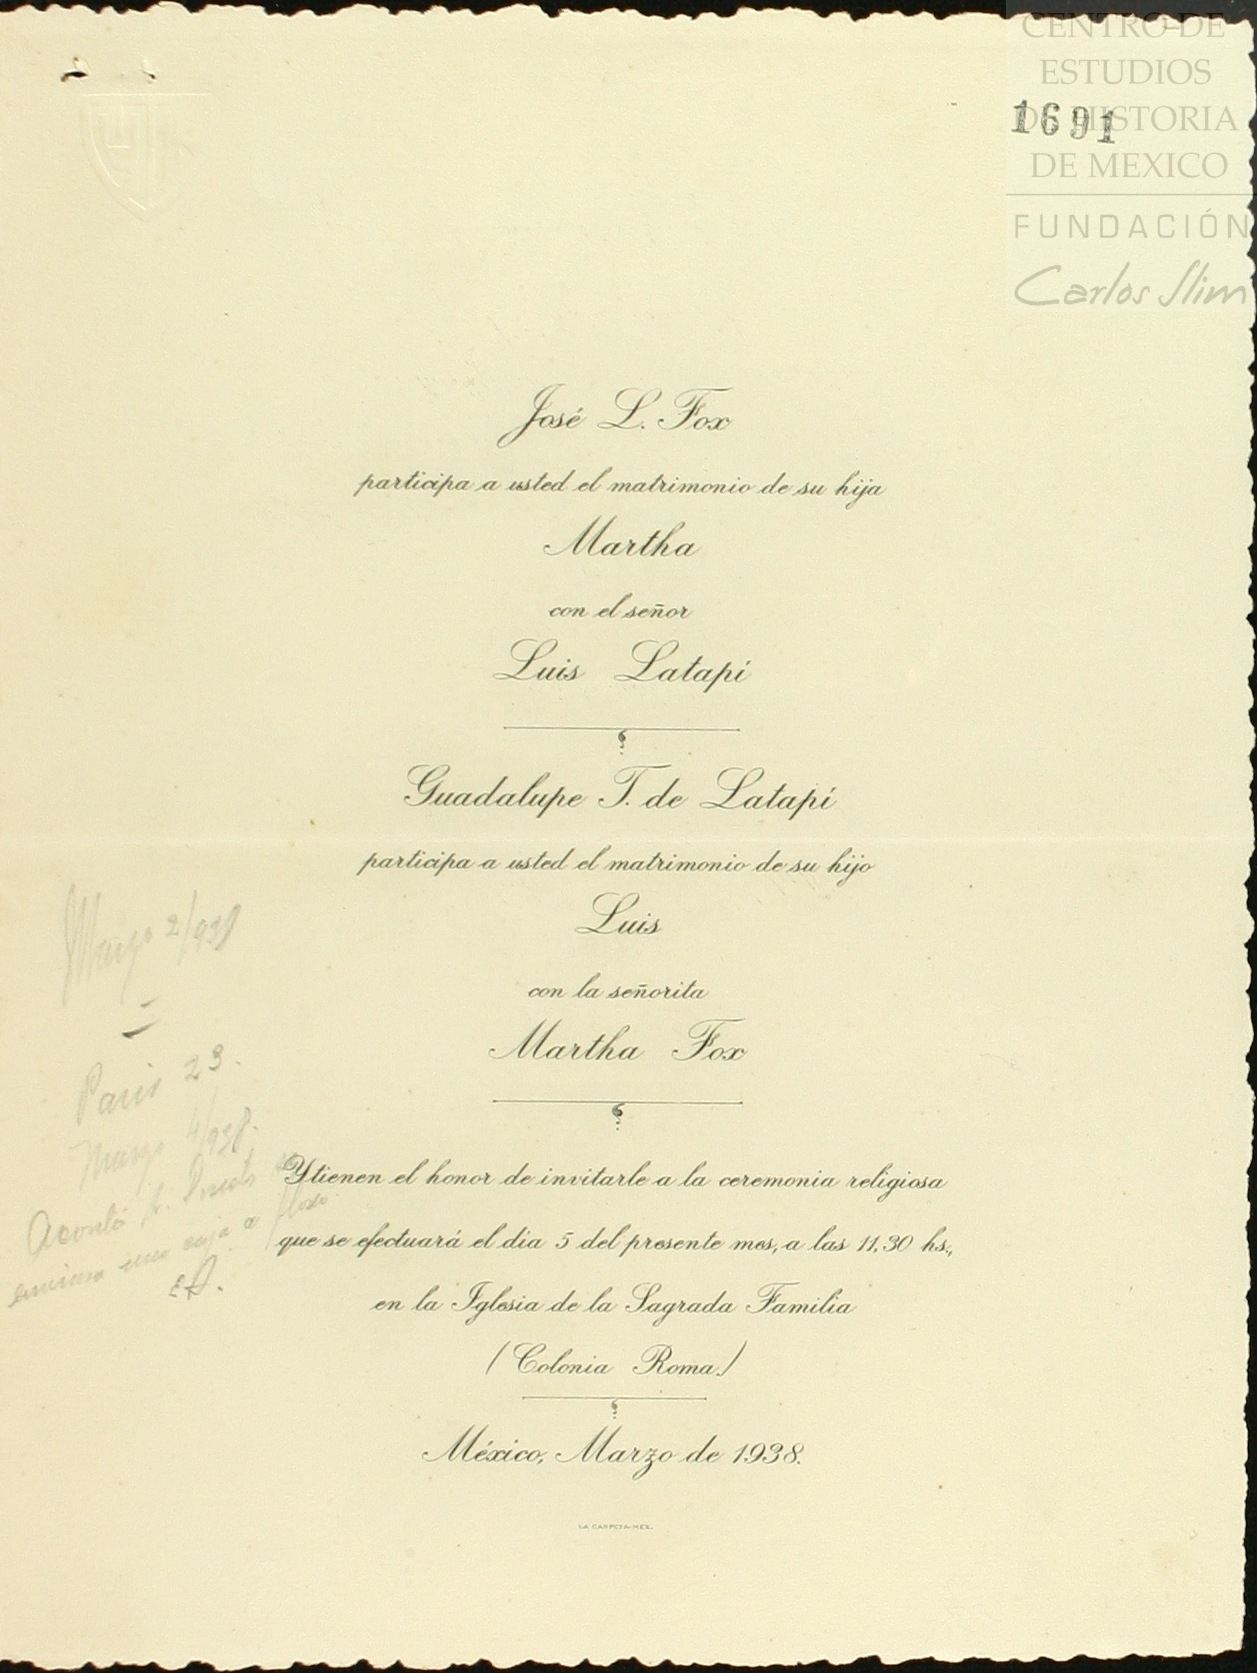 CENTRO DE
ESTUDIOS
DE HISTORIA
DE MEXICO
FUNDACIÓN
Carlos Slim
1691
José L. Fox
participa a usted el matrimonio de su hija
Martha
con el señor
Luis Latapí
Guadalupe T. de Latapí
participa a usted el matrimonio de su hijo
Luis
con la señorita
Martha Fox
Y tienen el honor de invitarle a la ceremonia religiosa
que se efectuará el dia 5 del presente mes, a las 11,30 hs.,
en la Iglesia de la Sagrada Familia
(Colonia Roma.)
México, Marzo de 1938.
LA CARPETA-MEX.
Marzo 2/938
Paris 23.
Marzo 4/938.